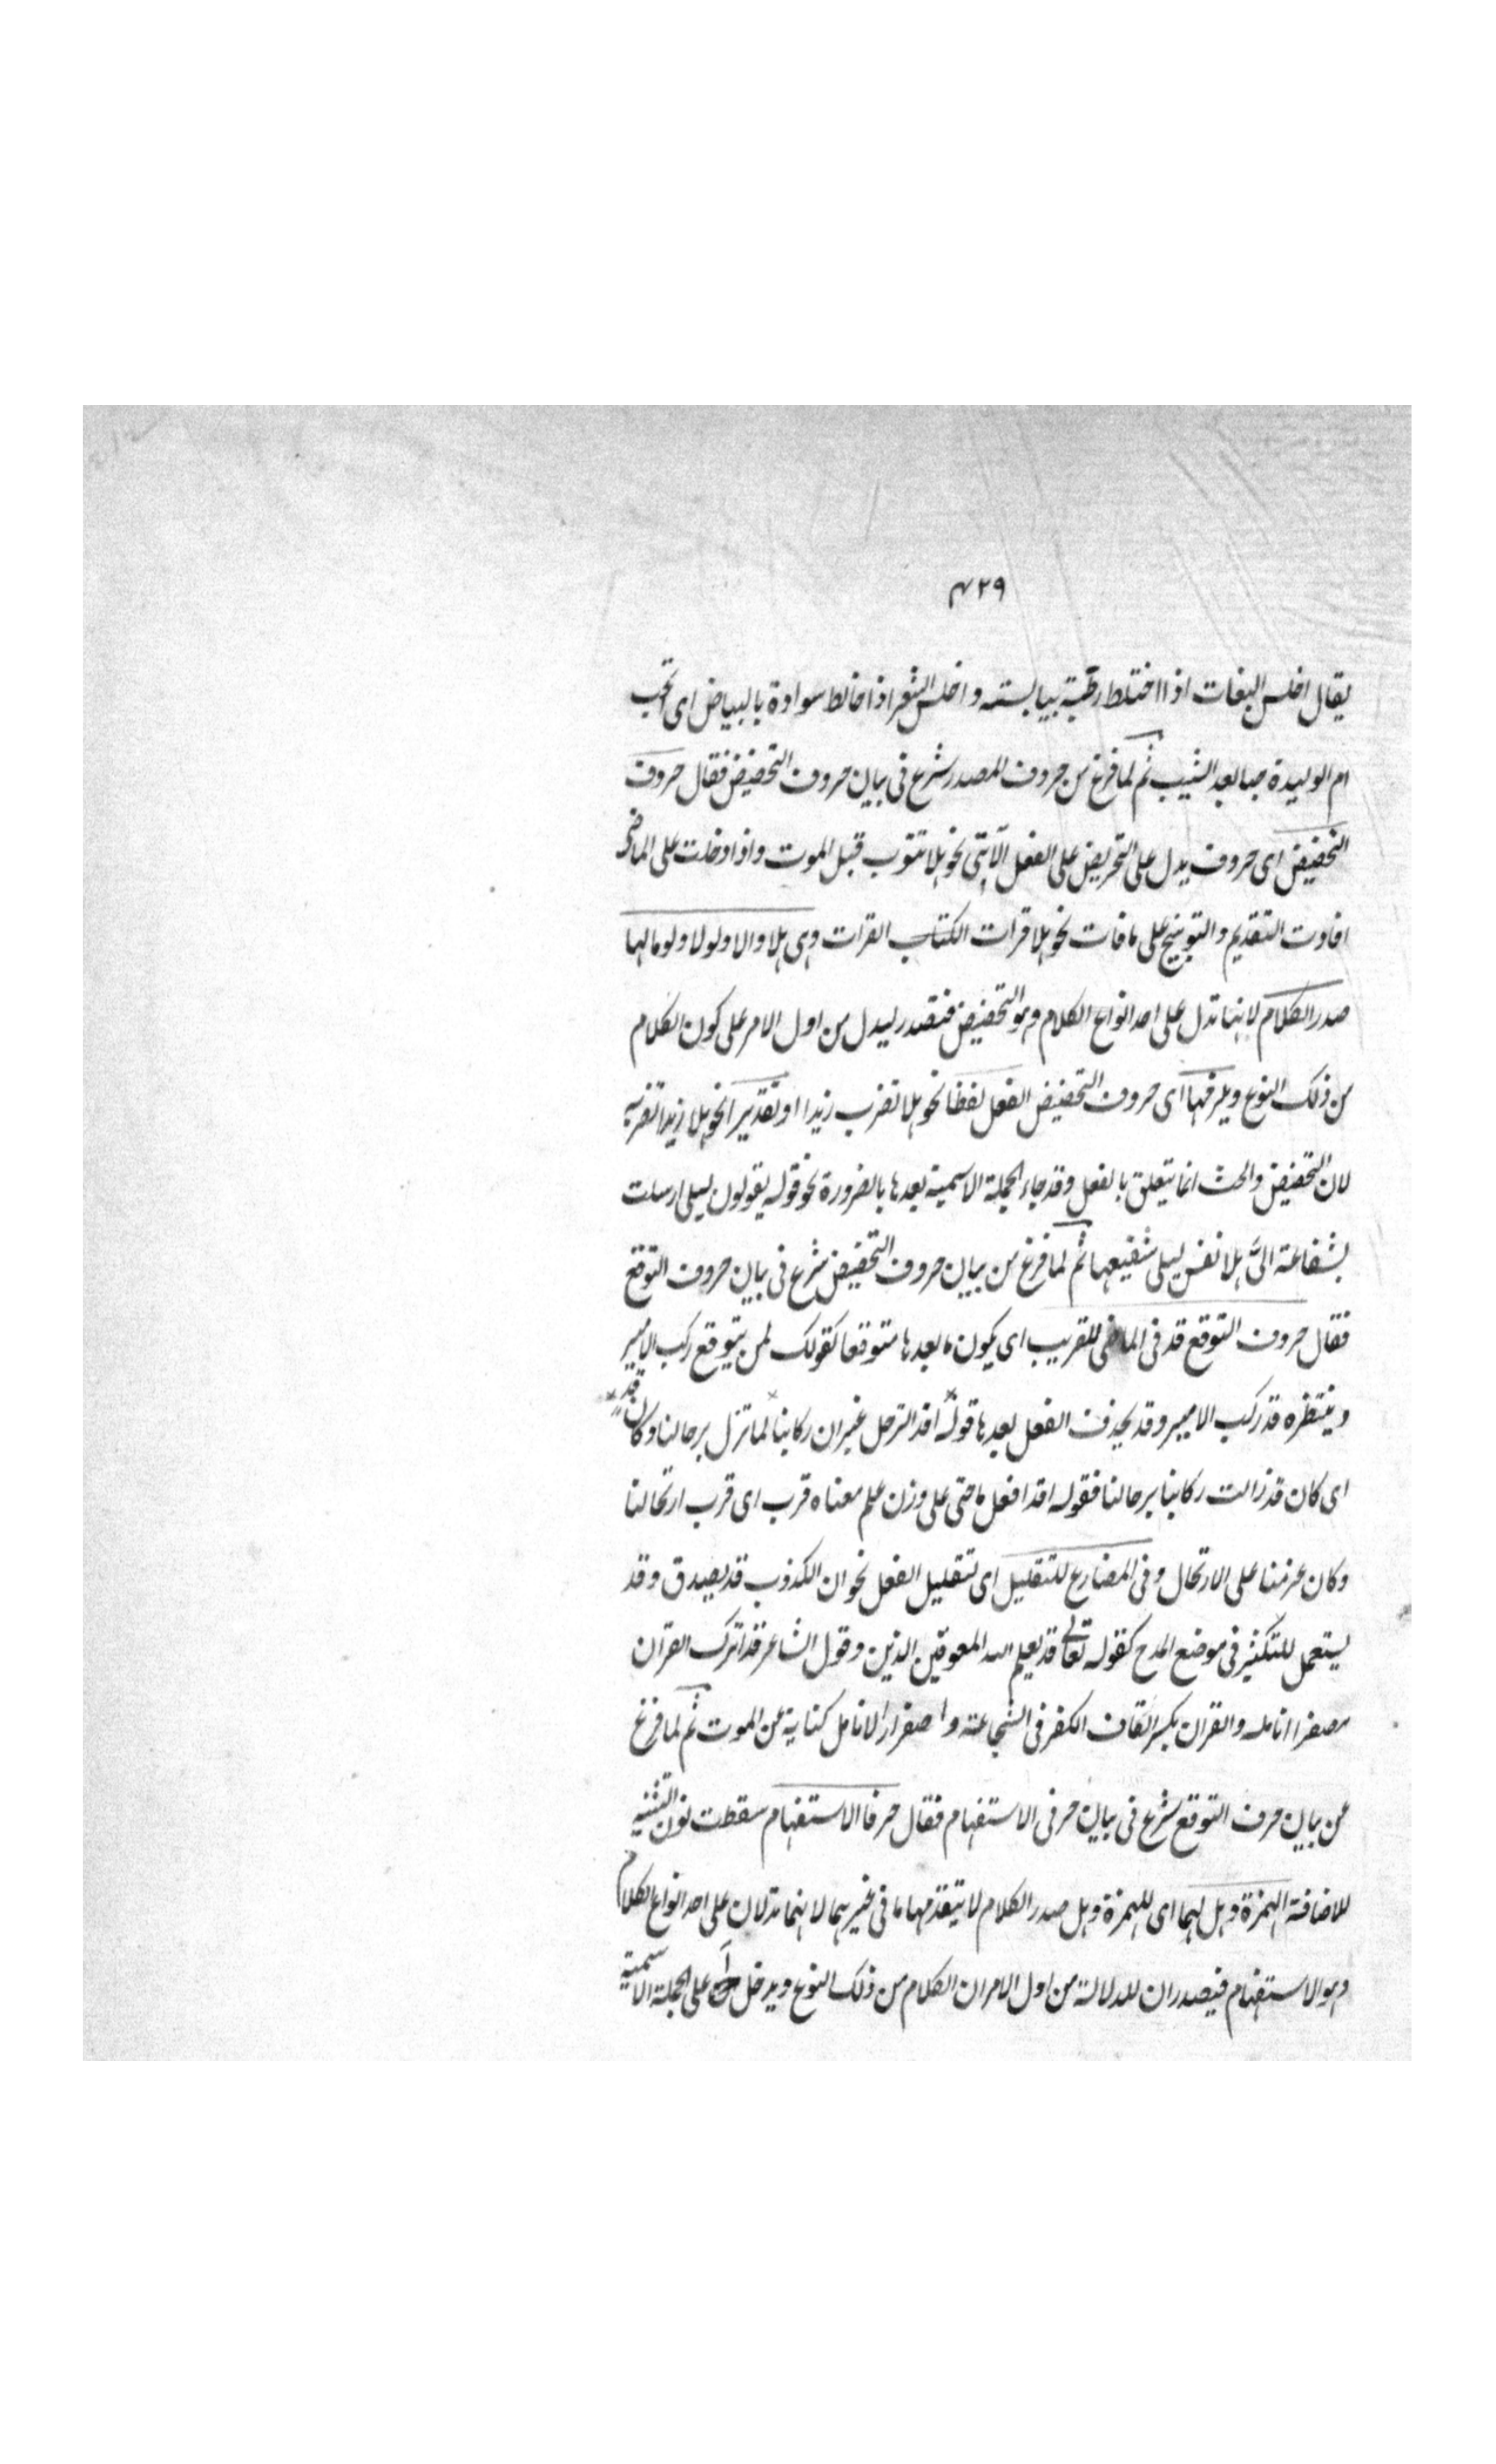 ٤٢٩
يقال اخلس البغات اذا اختلط رطبة بيابسته و اخلس الشعر اذا خالط سوادة بالبياض اى تحب
ام الوليدة حبا بعد الشيب ثم لما فرغ من حروف المصدر شرع فى بيان حروف التحضيض فقال حروف
التحضيض اى حروف يدل على التحريض على الفعل الآتى نحو هلا تتوب قبل الموت واذا دخلت على الماضى
افادت التقديم والتوبيخ على ما فات نحو هلا قرات الكتاب القرات وهى هلا والا ولولا ولوما لها
صدر الكلام لانها تدل على احد انواع الكلام وهو التحضيض فتصدر ليدل من اول الامر على كون الكلام
من ذلك النوع ويلزمها اى حروف التحضيض الفعل لفظا نحو هلا تضرب زيدا او تقديرا نحو هلا زيدا تضربه
لان التحضيض والحث انما يتعلق بالفعل وقد جاء الجملة الاسمية بعدها بالضرورة نحو قوله يقولون ليلى ارسلت
بشفاعة الىّ هلا نفس ليلى شفيعها ثم لما فرغ من بيان حروف التحضيض شرع فى بيان حروف التوقع
فقال حروف التوقع قد فى الماضى للتقريب اى يكون ما بعدها متوقعا كقولك لمن يتوقع ركب الامير
وينتظره قد ركب الامير وقد يحذف الفعل بعدها قوله افد الترحل غير ان ركابنا لما تزل برحالنا وكان قد
اى كان قد زالت ركابنا برحالنا فقوله افد افعل ماضى على وزن علم معناه قرب اى قرب ارتحالنا
وكان عزمنا على الارتحال وفى المضارع للتقليل اى لتقليل الفعل نحو ان الكذوب قد يصدق وقد
يستعمل للتكثير فى موضع المدح كقوله تعالى قد يعلم الله المعوقين الذين وقول الشاعر قد اترك القران
مصفرا انامله والقران بكسر القاف الكفر فى الشجاعة واصفرار الانامل كناية عن الموت ثم لما فرغ
عن بيان حرف التوقع شرع فى بيان حرفى الاستفهام فقال حرفا الاستفهام سقطت نون التثنية
للاضافة الهمزة وهل لهما اى للهمزة وهل صدر الكلام لا يتقدمها ما فى خيرهما لانهما تدلان على احد انواع الكلام
وهو الاستفهام فيصدران للدلالة من اول الامر ان الكلام من ذلك النوع ويدخل على الجملة الاسمية